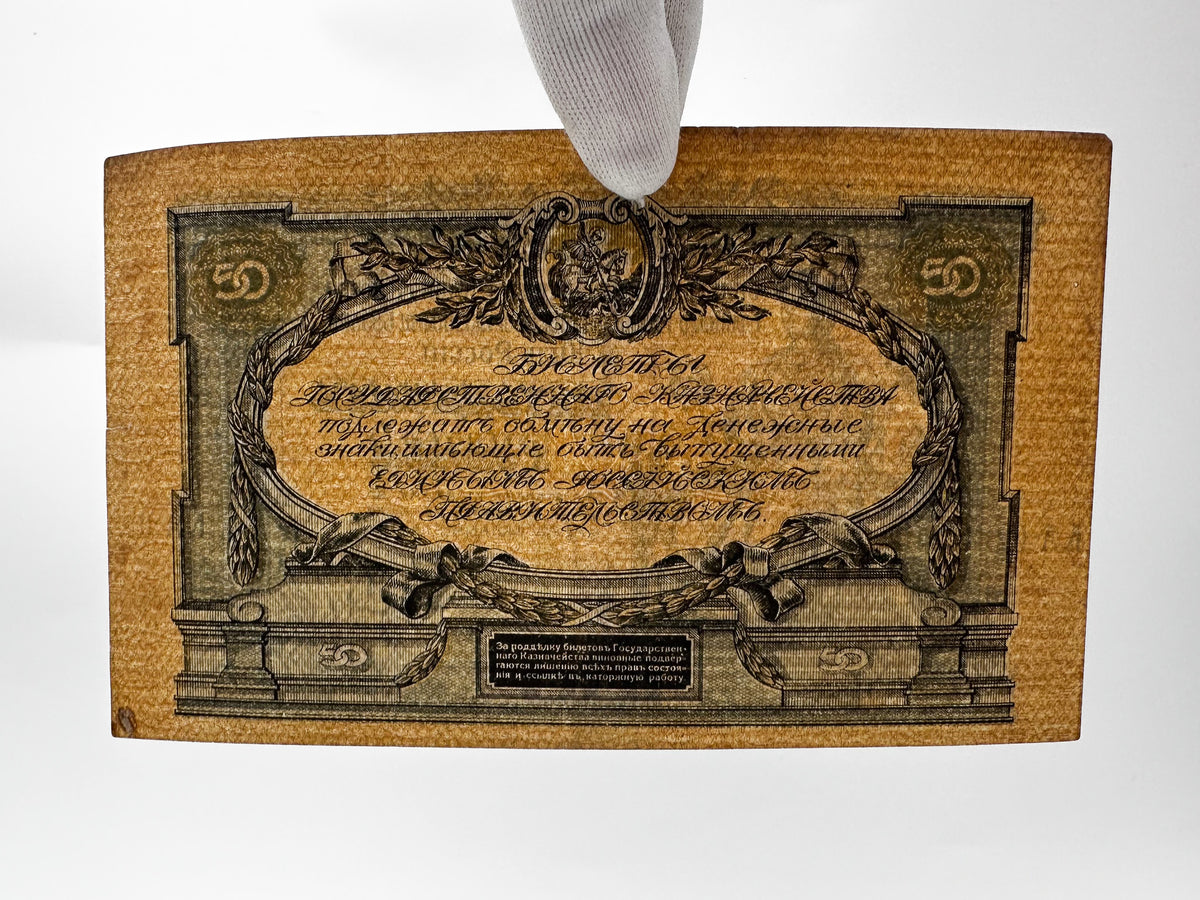 50
50
БИЛЕТЫ
ГОСУДАРСТВЕННАГО КАЗНАЧЕЙСТВА
подлежатъ обмѣну на денежные
знаки, имѣющіе быть выпущенными
ЕДИНЫМЪ РОССІЙСКИМЪ
ПРАВИТЕЛЬСТВОМЪ.
50
50
За поддѣлку билетовъ Государствен-
наго Казначейства виновные подвер-
гаются лишенію всѣхъ правъ состоя-
нія и ссылкѣ въ каторжную работу.